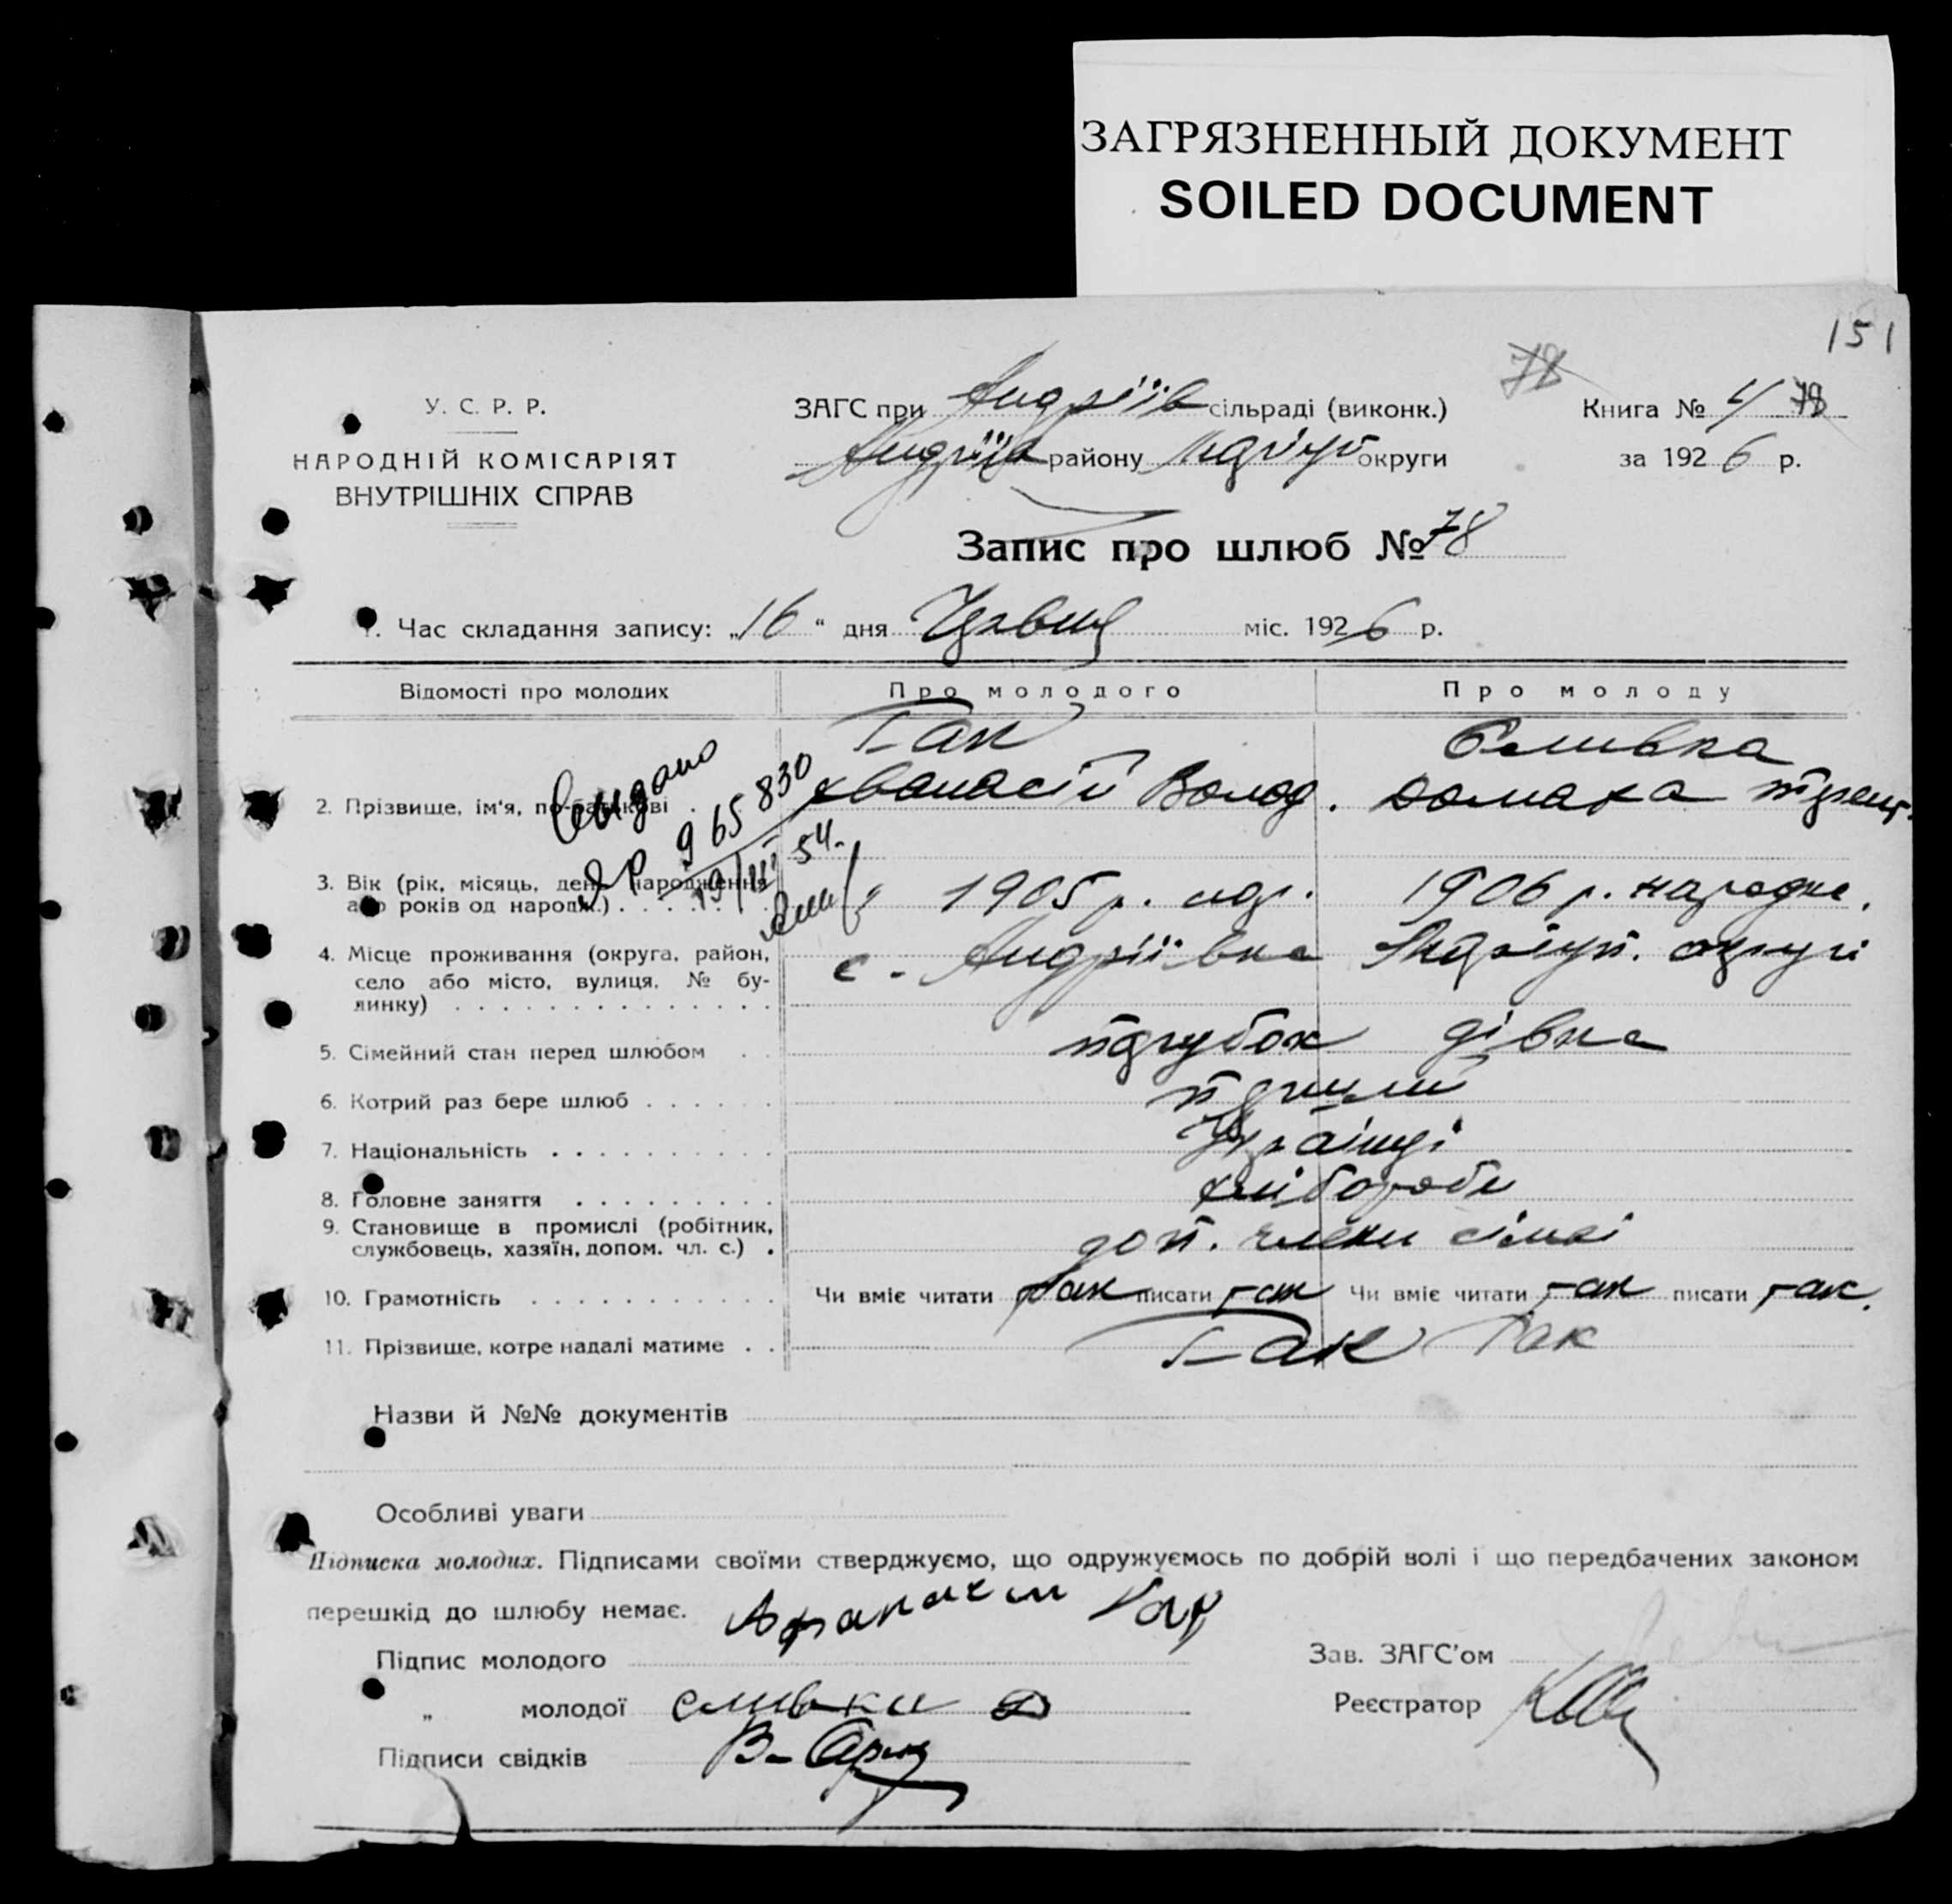 ЗАГРЯЗНЕННЫЙ ДОКУМЕНТ
SOILED DOCUMENT
151
78
У. С. Р. Р.
НАРОДНІЙ КОМІСАРІЯТ
ВНУТРІШНІХ СПРАВ
ЗАГС при Андріїв сільраді (виконк.)
Андріїв району округи
Книга № 4 78
за 1926 р.
Запис про шлюб № 78
1. Час складання запису: „16" дня Червня міс. 1926 р.
Відомості про молодих
Про молодого
Про молоду
2. Прізвище, ім'я, по-батькові
Гак
Сливка
Опанасій Волод.
Домаха
Видано
965830
19/III 54.
3. Вік (рік, місяць, день народження
або років од народж.)
1905 р. нар.
1906 р. народж.
4. Місце проживання (округа, район,
село або місто, вулиця, № бу-
динку)
с. Андріївка округи
5. Сімейний стан перед шлюбом
парубок дівка
6. Котрий раз бере шлюб
7. Національність
Українці
8. Головне заняття
хлібороби
9. Становище в промислі (робітник,
службовець, хазяїн, допом. чл. с.)
доп. члени сімьі
10. Грамотність
Чи вміє читати так писати так Чи вміє читати так писати так.
11. Прізвище, котре надалі матиме
Гак Гак
Назви й №№ документів
Особливі уваги
Підписка молодих. Підписами своїми стверджуємо, що одружуємось по добрій волі і що передбачених законом
перешкід до шлюбу немає.
Підпис молодого Афанасий Гак
Зав. ЗАГС'ом
„ молодої сливки Д
Реєстратор
Підписи свідків